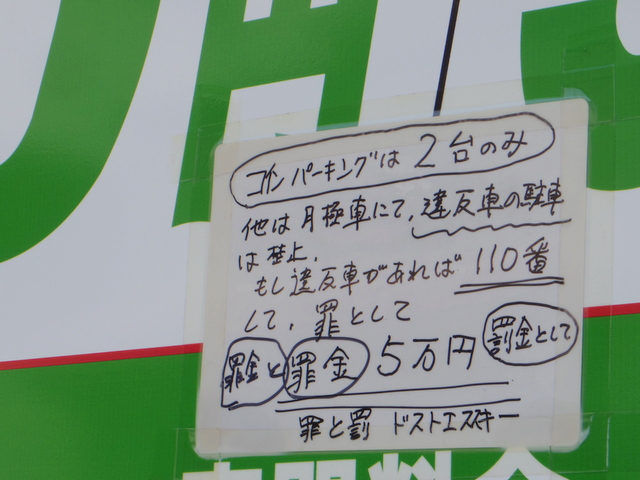 コインパーキングは2台のみ
他は月極車にて、違反車の駐車
は禁止.
もし違反車があれば110番
して、罪として
罪金と罪金 5万円 罰金として
罪と罰 ドストエスキー